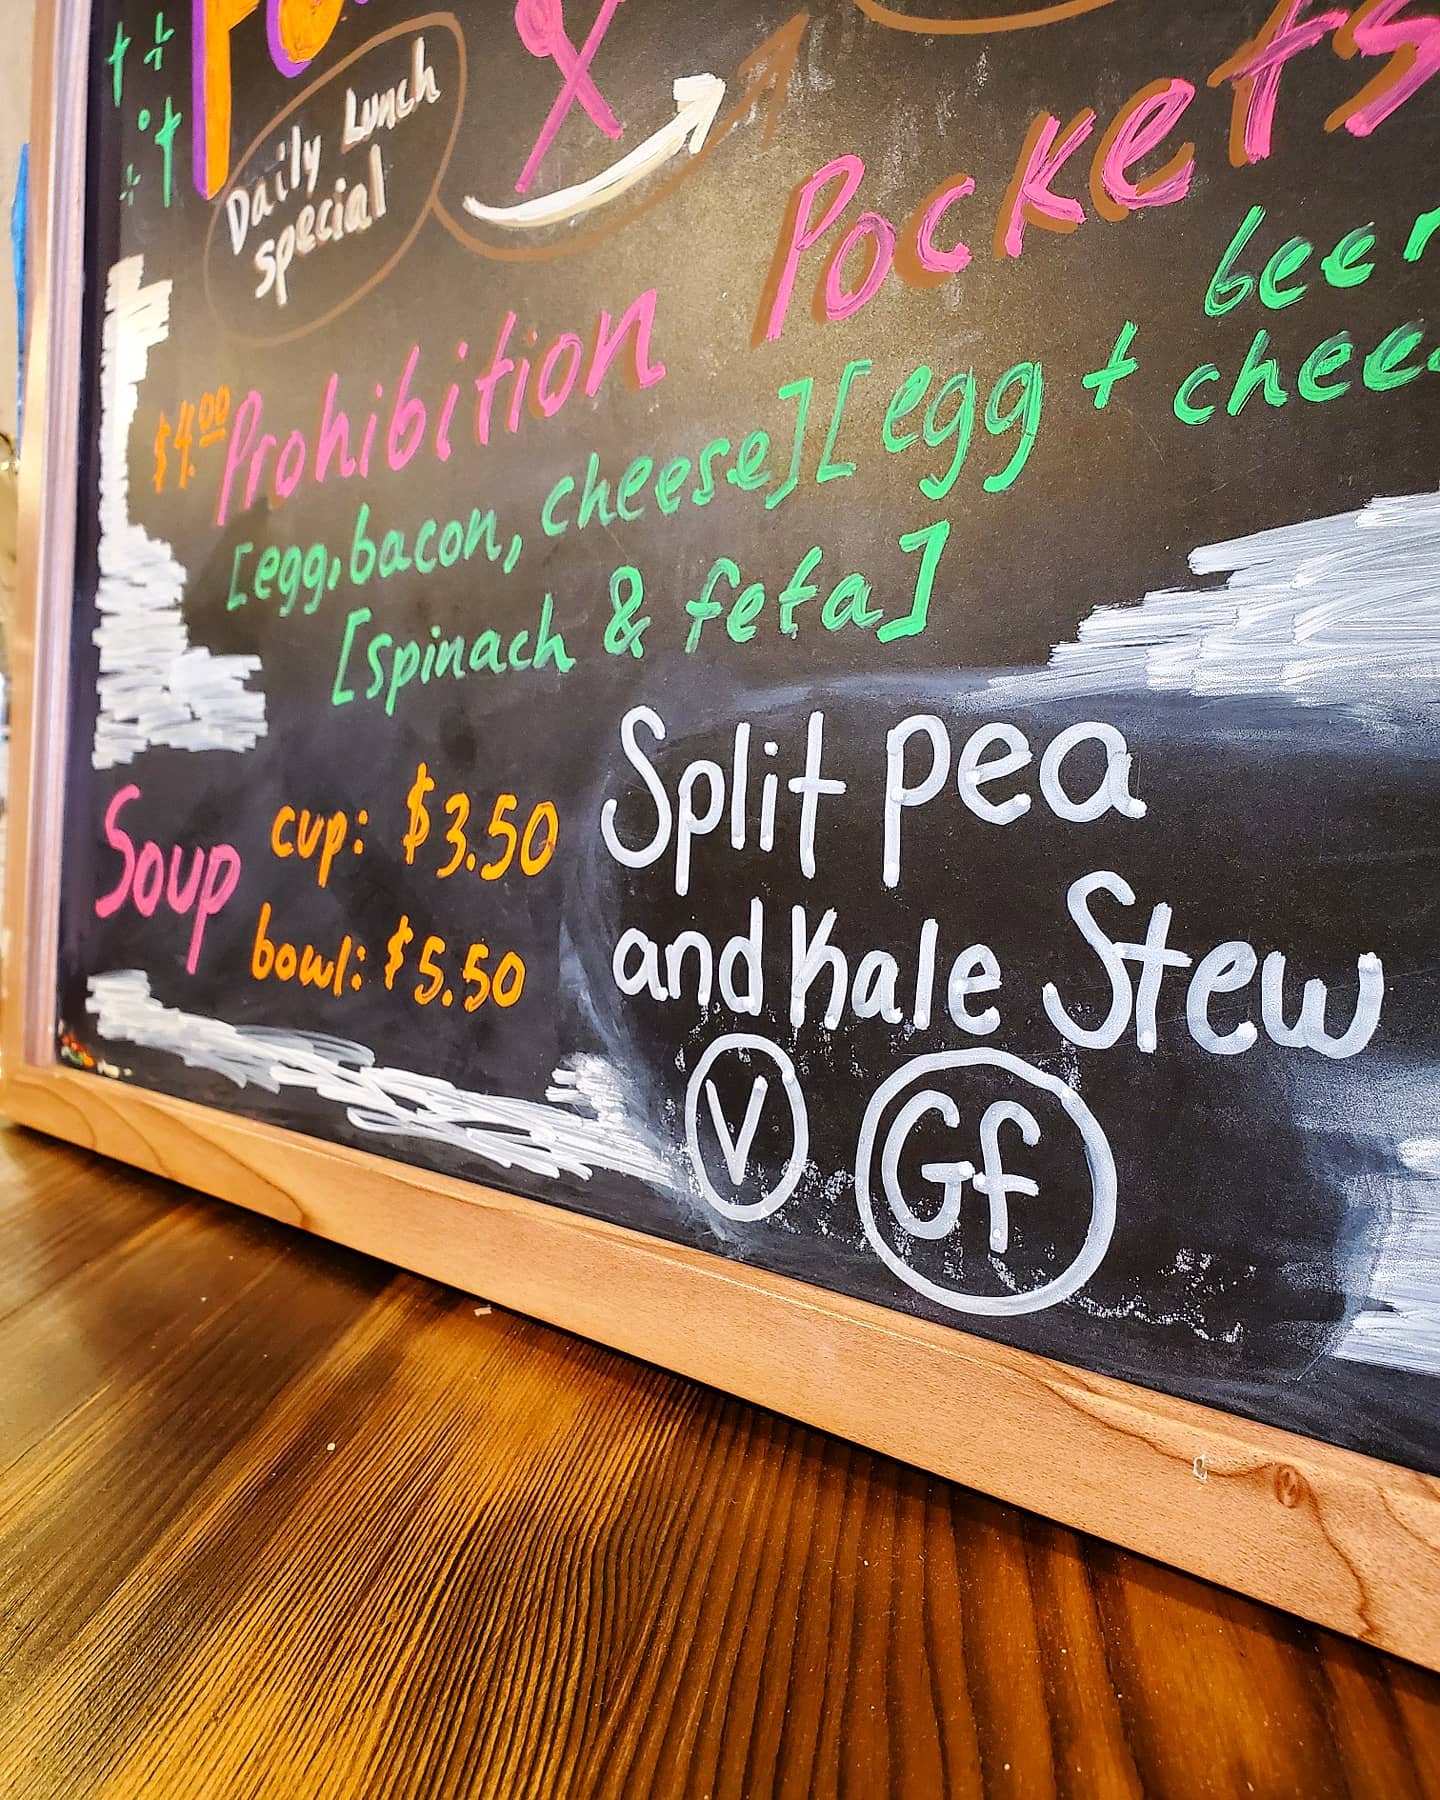 Daily Lunch
special
Prohibition Pockets
$4.00
beer
[egg, bacon, cheese] [egg + chee
[spinach & feta]
Soup
cup: $3.50
bowl: $5.50
Split pea
and Kale Stew
V Gf